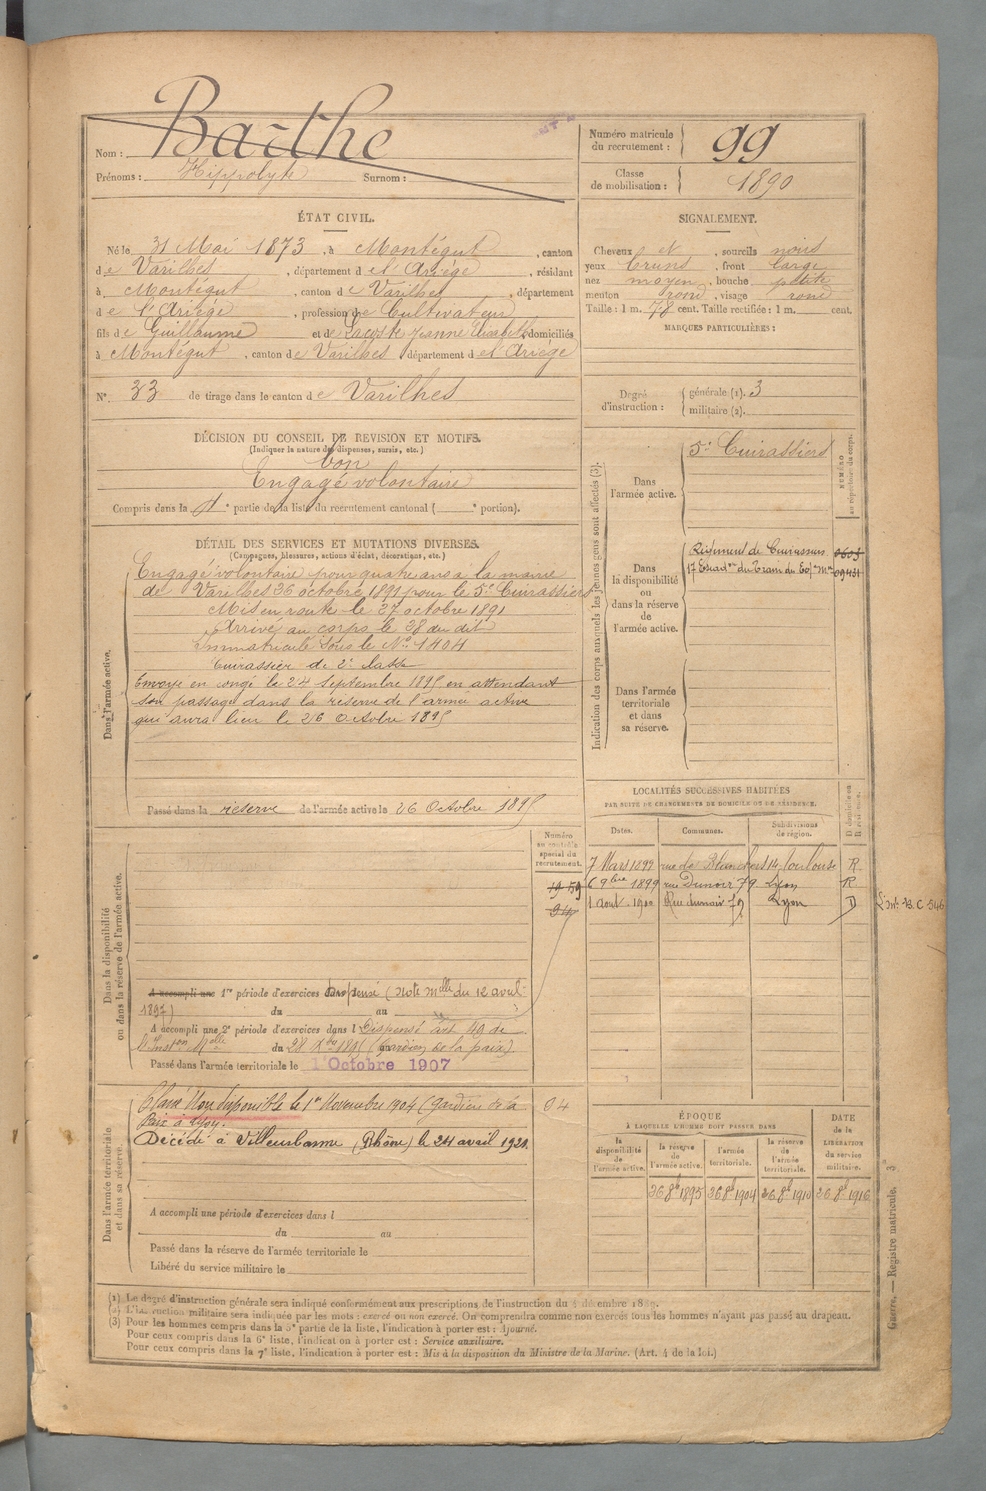 Nom : Barthe
Prénoms : Hippolyte Surnom :
Numéro matricule du recrutement : 99
Classe de mobilisation : 1890
ÉTAT CIVIL.
Né le 31 Mai 1873, à Montégut, canton
de Varilhes, département de l'Ariège, résidant
à Montégut, canton de Varilhes, département
de l'Ariège, profession de Cultivateur
fils de Guillaume et de Lacoste Jeanne Elisabeth, domiciliés
à Montégut, canton de Varilhes département de l'Ariège
N° 33 de tirage dans le canton de Varilhes
SIGNALEMENT.
Cheveux et, sourcils noirs
yeux bruns, front large
nez moyen, bouche petite
menton rond, visage rond
Taille : 1 m. 78 cent. Taille rectifiée : 1 m. cent.
MARQUES PARTICULIÈRES :
Degré d'instruction : générale (1). 3
militaire (2).
DÉCISION DU CONSEIL DE REVISION ET MOTIFS.
(Indiquer la nature des dispenses, sursis, etc.)
bon
Engagé volontaire
Compris dans la partie de la liste du recrutement cantonal ( portion).
DÉTAIL DES SERVICES ET MUTATIONS DIVERSES.
(Campagnes, blessures, actions d'éclat, décorations, etc.)
Dans l'armée active.
Engagé volontaire pour quatre ans à la mairie
de Varilhes 26 octobre 1891 pour le 5e Cuirassiers
Mis en route le 27 octobre 1891
Arrivé au corps le 28 du dit
Immatriculé sous le N° 1404
Cuirassier de 2e classe
Envoyé en congé le 24 Septembre 1895 en attendant
son passage dans la réserve de l'armée active
qui aura lieu le 26 Octobre 1895
Passé dans la réserve de l'armée active le 26 Octobre 1895
Indication des corps auxquels les jeunes gens sont affectés (3).
NUMÉRO au répertoire du corps.
Dans l'armée active.
5e Cuirassiers
Dans la disponibilité ou dans la réserve de l'armée active.
Régiment de Cuirassiers
17 Escadron du Train des Eq. Mres 09431
Dans l'armée territoriale et dans sa réserve.
LOCALITÉS SUCCESSIVES HABITÉES
PAR SUITE DE CHANGEMENTS DE DOMICILE OU DE RÉSIDENCE.
Dates. Communes. Subdivisions de région. D. domicile ou R. résidence.
7 Mars 1899 rue de 14 Toulouse R
6 9bre 1899 rue Dunoir 79 Lyon R
1 aout 1900 Rue dunoir 79 Lyon D
Dans la disponibilité ou dans la réserve de l'armée active.
Numéro au contrôle spécial du recrutement.
A accompli une 1re période d'exercices dans Dispensé (Note Melle du 12 avril
1897) du au
A accompli une 2e période d'exercices dans l Dispensé art 49 de
l'Inston Melle du 28 Xbre 1895 (Gardien de la paix)
Passé dans l'armée territoriale le 1 Octobre 1907
Dans l'armée territoriale et dans sa réserve.
Classé Non disponible le 1er Novembre 1904 (Gardien de la 94
Paix à Lyon.
Décédé à Villeurbanne (Rhône) le 24 avril 1921.
A accompli une période d'exercices dans l
du au
Passé dans la réserve de l'armée territoriale le
Libéré du service militaire le
ÉPOQUE
À LAQUELLE L'HOMME DOIT PASSER DANS
DATE de la LIBÉRATION du service militaire.
la disponibilité de l'armée active. la réserve de l'armée active. l'armée territoriale. la réserve de l'armée territoriale.
26 8b 1895 26 8b 1904 26 8b 1910 26 8b 1916
Guerre. — Registre matricule. 3e
(1) Le degré d'instruction générale sera indiqué conformément aux prescriptions de l'instruction du 4 décembre 1889.
(2) L'instruction militaire sera indiquée par les mots : exercé ou non exercé. On comprendra comme non exercés tous les hommes n'ayant pas passé au drapeau.
(3) Pour les hommes compris dans la 5e partie de la liste, l'indication à porter est : Ajourné.
Pour ceux compris dans la 6e liste, l'indication à porter est : Service auxiliaire.
Pour ceux compris dans la 7e liste, l'indication à porter est : Mis à la disposition du Ministre de la Marine. (Art. 4 de la loi.)